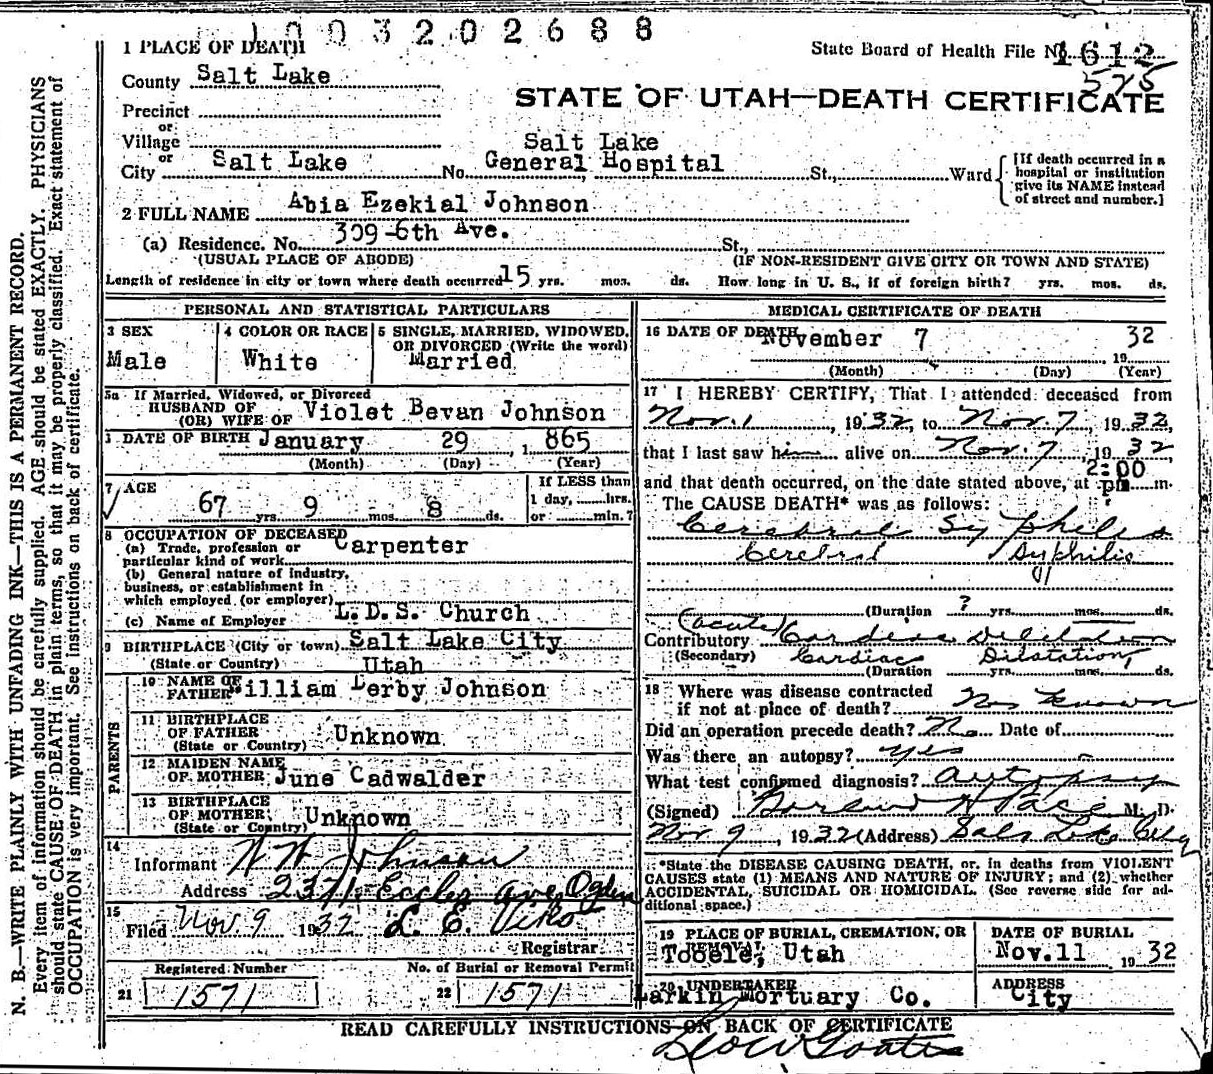 1003202688
1 PLACE OF DEATH
State Board of Health File No. 1612
575
County Salt Lake
STATE OF UTAH—DEATH CERTIFICATE
Precinct
or
Village
or
City Salt Lake No. Salt Lake General Hospital St., Ward
[If death occurred in a
hospital or institution
give its NAME instead
of street and number.]
2 FULL NAME Abia Ezekial Johnson
(a) Residence. No. 309-6th Ave. St.,
(USUAL PLACE OF ABODE) (IF NON-RESIDENT GIVE CITY OR TOWN AND STATE)
Length of residence in city or town where death occurred 15 yrs. mos. ds. How long in U. S., if of foreign birth? yrs. mos. ds.
PERSONAL AND STATISTICAL PARTICULARS
3 SEX
Male
4 COLOR OR RACE
White
5 SINGLE, MARRIED, WIDOWED,
OR DIVORCED (Write the word)
Married
5a If Married, Widowed, or Divorced
HUSBAND OF
(OR) WIFE OF Violet Bevan Johnson
DATE OF BIRTH January 29, 1865
(Month) (Day) (Year)
7 AGE
67 yrs. 9 mos. 8 ds.
If LESS than
1 day, hrs.
or min.?
8 OCCUPATION OF DECEASED
(a) Trade, profession or
particular kind of work Carpenter
(b) General nature of industry,
business, or establishment in
which employed (or employer)
(c) Name of Employer L.D.S. Church
9 BIRTHPLACE (City or town) Salt Lake City
(State or Country) Utah
PARENTS
10 NAME OF
FATHER William Derby Johnson
11 BIRTHPLACE
OF FATHER
(State or Country) Unknown
12 MAIDEN NAME
OF MOTHER June Cadwalder
13 BIRTHPLACE
OF MOTHER
(State or Country) Unknown
14
Informant Johnson
Address 2371 Eccles Ave, Ogden
15
Filed Nov. 9 1932 L. E. Viko
Registrar
Registered Number
21 1571
No. of Burial or Removal Permit
22 1571
MEDICAL CERTIFICATE OF DEATH
16 DATE OF DEATH November 7 1932
(Month) (Day) (Year)
17 I HEREBY CERTIFY, That I attended deceased from
Nov. 1, 1932, to Nov. 7, 1932,
that I last saw him alive on Nov. 7, 1932
and that death occurred, on the date stated above, at 2:00 pm m.
The CAUSE DEATH* was as follows:
Cerebral Syphilis
Cerebral Syphilis
(Duration ? yrs. mos. ds.
Contributory (acute) Cardiac Dilatation
(Secondary) Cardiac Dilatation,
(Duration yrs. mos. ds.
18 Where was disease contracted
if not at place of death? Not Known
Did an operation precede death? No Date of
Was there an autopsy? yes
What test confirmed diagnosis? autopsy
(Signed) Pace M. D.
Nov 9, 1932 (Address) Salt Lake City
*State the DISEASE CAUSING DEATH, or, in deaths from VIOLENT
CAUSES state (1) MEANS AND NATURE OF INJURY; and (2) whether
ACCIDENTAL, SUICIDAL OR HOMICIDAL. (See reverse side for ad-
ditional space.)
19 PLACE OF BURIAL, CREMATION, OR
REMOVAL
Tooele, Utah
DATE OF BURIAL
Nov. 11 1932
20 UNDERTAKER
Larkin Mortuary Co.
ADDRESS
City
READ CAREFULLY INSTRUCTIONS ON BACK OF CERTIFICATE
N. B.—WRITE PLAINLY WITH UNFADING INK—THIS IS A PERMANENT RECORD.
Every item of information should be carefully supplied. AGE should be stated EXACTLY. PHYSICIANS
should state CAUSE OF DEATH in plain terms, so that it may be properly classified. Exact statement of
OCCUPATION is very important. See instructions on back of certificate.